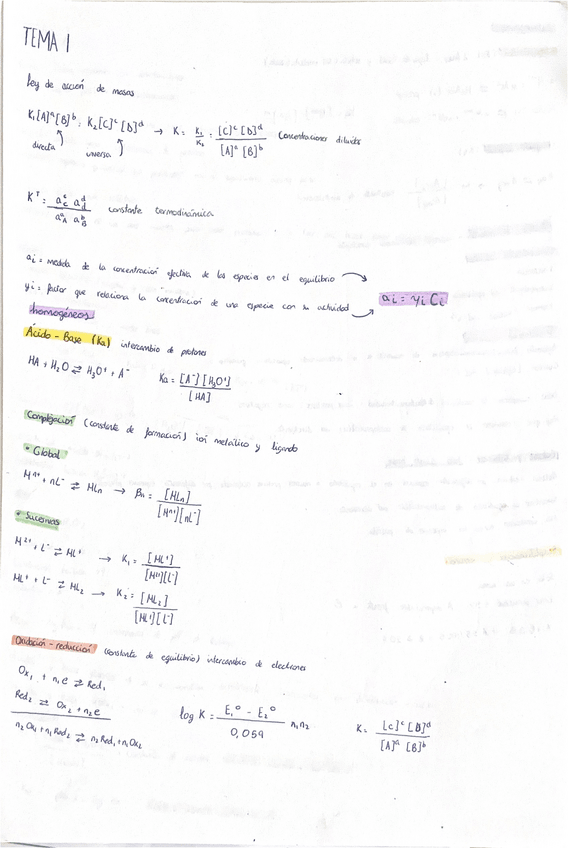 TEMA 1
ley de acción de masas
K₁[A]ᵃ[B]ᵇ = K₂[C]ᶜ[D]ᵈ → K = K₁/K₂ = [C]ᶜ[D]ᵈ / [A]ᵃ[B]ᵇ Concentraciones diluidas
directa inversa
Kᵀ = a_C^c a_d^d / a_A^a a_B^b constante termodinámica
ai = medida de la concentración efectiva de las especies en el equilibrio
γi = factor que relaciona la concentración de una especie con su actividad
ai = γi Ci
homogéneos
Ácido - Base (Ka) intercambio de protones
HA + H₂O ⇌ H₃O⁺ + A⁻ Ka = [A⁻][H₃O⁺] / [HA]
Complejación (constante de formación) ion metálico y ligando
• Global
Mⁿ⁺ + nL⁻ ⇌ MLn → βn = [MLn] / [Mⁿ⁺][nL⁻]
• Sucesivas
M²⁺ + L⁻ ⇌ ML⁺ → K₁ = [ML⁺] / [M²⁺][L⁻]
ML⁺ + L⁻ ⇌ ML₂ → K₂ = [ML₂] / [ML⁺][L⁻]
Oxidación - reducción (constante de equilibrio) intercambio de electrones
Ox₁ + n₁e ⇌ Red₁
Red₂ ⇌ Ox₂ + n₂e
n₂Ox₁ + n₁Red₂ ⇌ n₂Red₁ + n₁Ox₂
log K = E₁° - E₂° / 0,059 n₁n₂
K = [C]ᶜ[D]ᵈ / [A]ᵃ[B]ᵇ